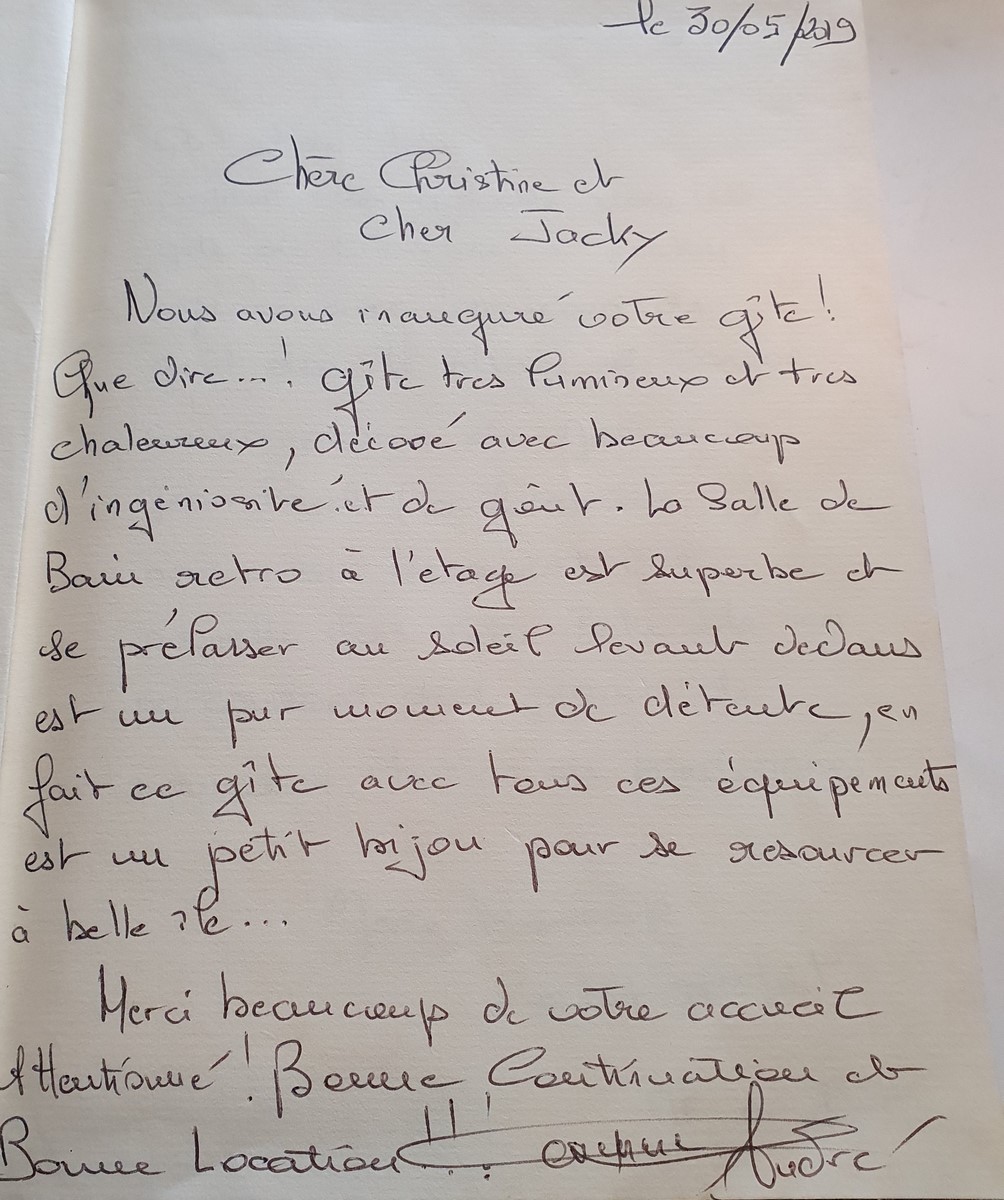 le 30/05/2019
Chère Christine et
Cher Jacky
Nous avons inauguré votre gîte !
Que dire... ! gîte tres lumineux et tres
chaleureux, décoré avec beaucoup
d'ingéniosité et de goût. La Salle de
Bain retro à l'étage est superbe et
se prélasser au soleil levant dedans
est un pur moment de détente, en
fait ce gîte avec tous ces équipements
est un petit bijou pour se resourcer
à belle île...
Merci beaucoup de votre accueil
Attentionné ! Bonne Continuation et
Bonne Location !!! André